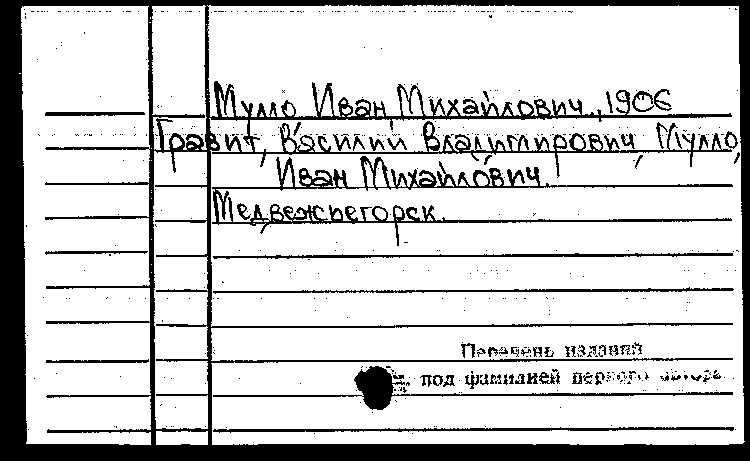 Мулло Иван Михайлович, 1906
Гравит, Василий Владимирович, Мулло,
Иван Михайлович.
Медвежьегорск.
Перечень изданий
см. под фамилией первого автора